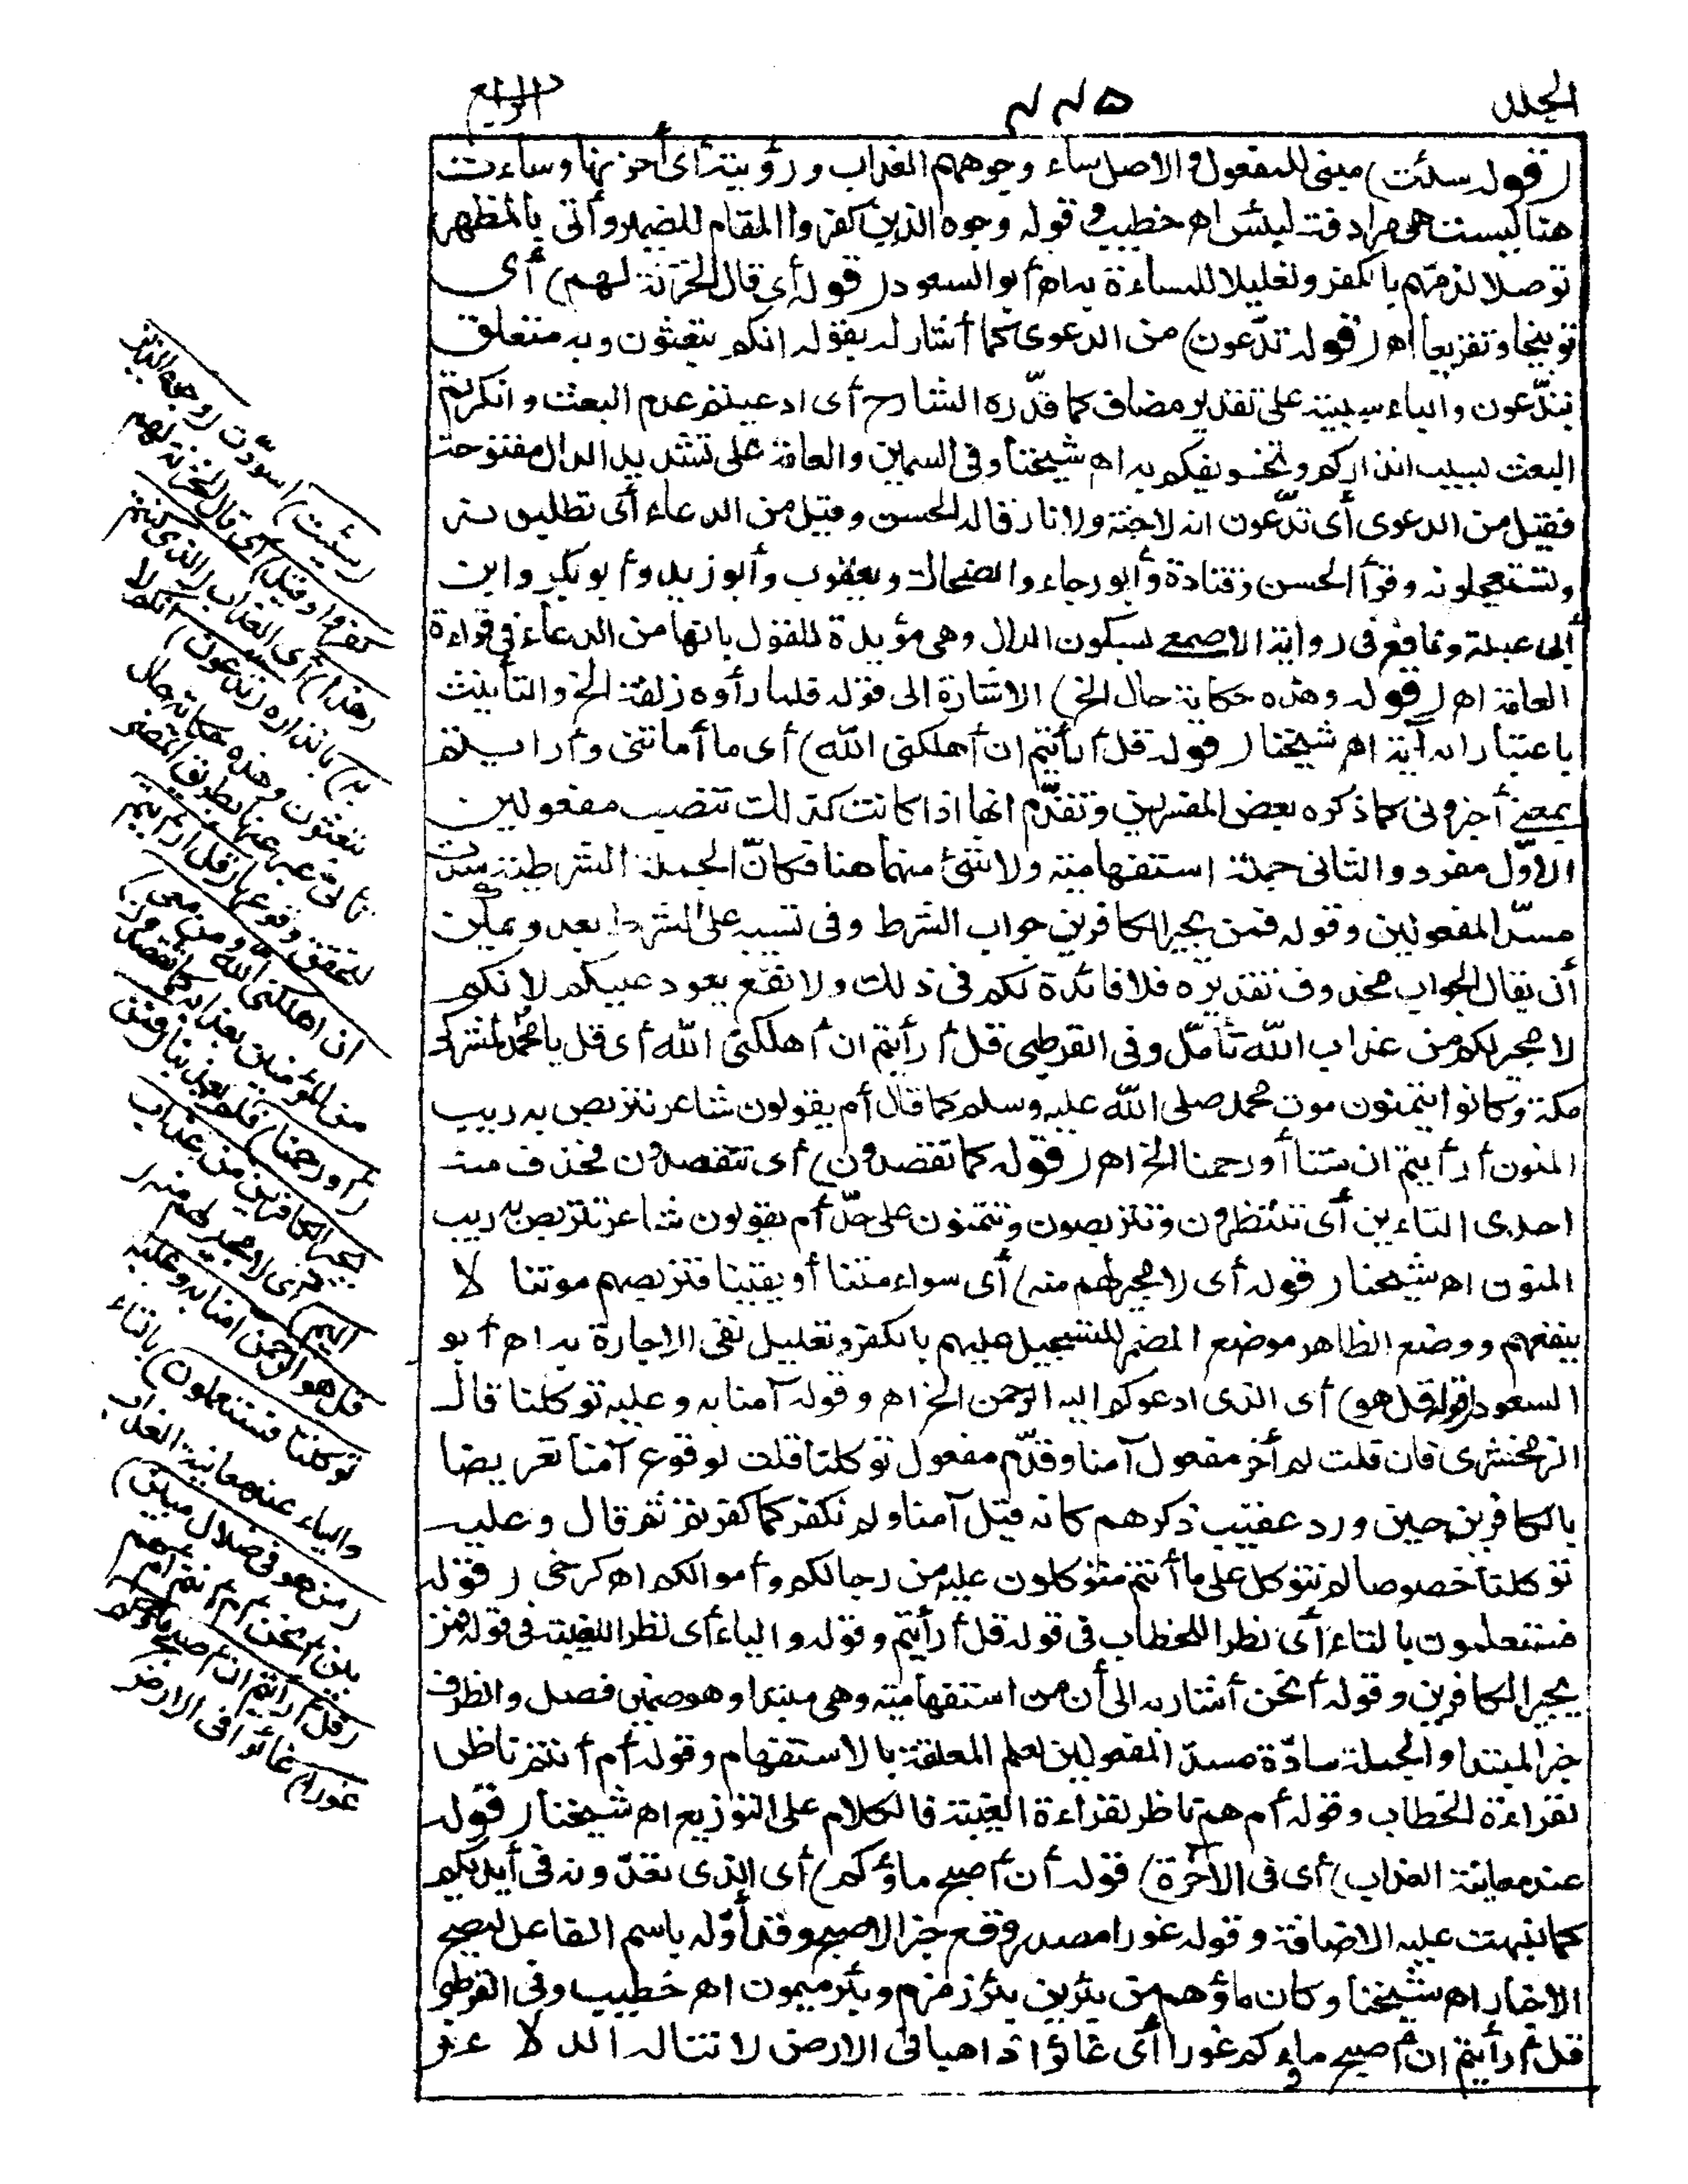 الجلد
٤٤٥
الرابع
(قوله سيئت) مبنى للمفعول والاصل ساء وجوههم العذاب ورؤيته أى أحزنها وساءت
هنا ليست هى مرادفة لبئس اه خطيب وقوله وجوه الذين كفروا المقام للضمير وأتى بالمظهر
توصلا لذمهم بالكفر وتعليلا للمساءة به اه أبو السعود (قوله أى قال الخزنة لهم) أى
توبيخا وتقريعا اه (قوله تدّعون) من الدعوى كما أشار له بقوله انكم تبعثون وبه متعلق
بتدّعون والباء سببية على تقدير مضاف كما قدّره الشارح أى ادعيتم عدم البعث وانكرتم
البعث بسبب انذاركم وتخويفكم به اه شيخنا وفى السمين والعامة على تشديد الدال مفتوحة
فقيل من الدعوى أى تدّعون انه لا جنة ولا نار قاله الحسن وقيل من الدعاء أى تطلبونه
وتستعجلونه وقرأ الحسن وقتادة وأبو رجاء والضحاك ويعقوب وأبو زيد وأبو بكر وابن
أبى عبلة ونافع فى رواية الاصمعى بسكون الدال وهى مؤيدة للقول بانها من الدعاء فى قراءة
العامة اه (قوله وهذه حكاية حال الخ) الاشارة الى قوله فلما رأوه زلفة الخ والتأنيث
باعتبار انه آية اه شيخنا (قوله قل أرأيتم ان أهلكنى الله) أى ما أماتنى وأرأيتم
بمعنى أخبرونى كما ذكره بعض المفسرين وتقدّم انها اذا كانت كذلك تنصب مفعولين
الاوّل مفرد والثانى جملة استفهامية ولا شئ منهما هنا فكانّ الجملة الشرطية سدت
مسدّ المفعولين وقوله فمن يجير الكافرين جواب الشرط وفى تسببه على الشرط بعد ويمكن
أن يقال الجواب محذوف تقديره فلا فائدة لكم فى ذلك ولا نفع يعود عليكم لانكم
لا مجير لكم من عذاب الله تأمّل وفى القرطبى قل أرأيتم ان أهلكنى الله أى قل يا محمد لمشركى
مكة وكانوا يتمنون موت محمد صلى الله عليه وسلم كما قال أم يقولون شاعر نتربص به ريب
المنون أرأيتم ان متنا أو رحمنا الخ اه (قوله كما تقصدون) أى تتقصدون فحذف منه
احدى التاءين أى تنتظرون وتتربصون وتتمنون على حدّ أم يقولون شاعر نتربص به ريب
المنون اه شيخنا (قوله أى لا مجير لهم منه) أى سواء متنا أو بقينا فتربصهم موتنا لا
ينفعهم ووضع الظاهر موضع المضمر للتسجيل عليهم بالكفر وتعليل نفى الاجارة به اه أبو
السعود (قوله قل هو) أى الذى ادعوكم اليه الرحمن الخ اه وقوله آمنا به وعليه توكلنا قال
الزمخشرى فان قلت لم أخر مفعول آمنا وقدّم مفعول توكلنا قلت لوقوع آمنا تعريضا
بالكافرين حين ورد عقيب ذكرهم كانه قيل آمنا ولم نكفر كما كفرتم ثم قال وعليه
توكلنا خصوصا لم نتوكل على ما أنتم متوكلون عليه من رجالكم وأموالكم اه كرخى (قوله
فستعلمون بالتاء) أى نظرا للخطاب فى قوله قل أرأيتم وقوله والياء أى نظرا للغيبة فى قوله فمن
يجير الكافرين وقوله أنحن أشار به الى أن من استفهامية وهى مبتدا وهو ضمير فصل والظرف
خبر المبتدا والجملة سادّة مسدّ المفعولين لعلم المعلقة بالاستفهام وقوله أم أنتم ناظر
لقراءة الخطاب وقوله أم هم ناظر لقراءة الغيبة فالكلام على التوزيع اه شيخنا (قوله
عند معاينة العذاب) أى فى الآخرة) قوله أن أصبح ماؤكم) أى الذى تعدّونه فى أيديكم
كما نبهت عليه الاضافة وقوله غورا مصدر وقع خبر الاصبح وقد أوّله باسم الفاعل ليصح
الاخبار اه شيخنا وكان ماؤهم من بئرين بئر زمزم وبئر ميمون اه خطيب وفى القرطبى
قل أرأيتم ان أصبح ماؤكم غورا أى غائرا ذاهبا فى الارض لا تناله الدلاء
(سيئت) اسودّت (وجوه الذين
كفروا وقيل) أى قال الخزنة لهم
(هذا) أى العذاب (الذى كنتم
به) بانذاره (تدعون) انكم لا
تبعثون وهذه حكاية حال
تأتى عبر عنها بطريق المضى
لتحقق وقوعها (قل أرأيتم
ان اهلكنى الله ومن معى)
من المؤمنين بعذابه كما تقصدون
(أو رحمنا) فلم يعذبنا (فمن
يجير الكافرين من عذاب
اليم) أى لا مجير لهم منه (
قل هو الرحمن امنا به وعليه
توكلنا فستعلمون) بالتاء
والياء عند معاينة العذاب
(من هو فى ضلال مبين)
بين أنحن أم أنتم أم هم
(قل أرأيتم ان أصبح ماؤكم
غورا) غائرا فى الارض